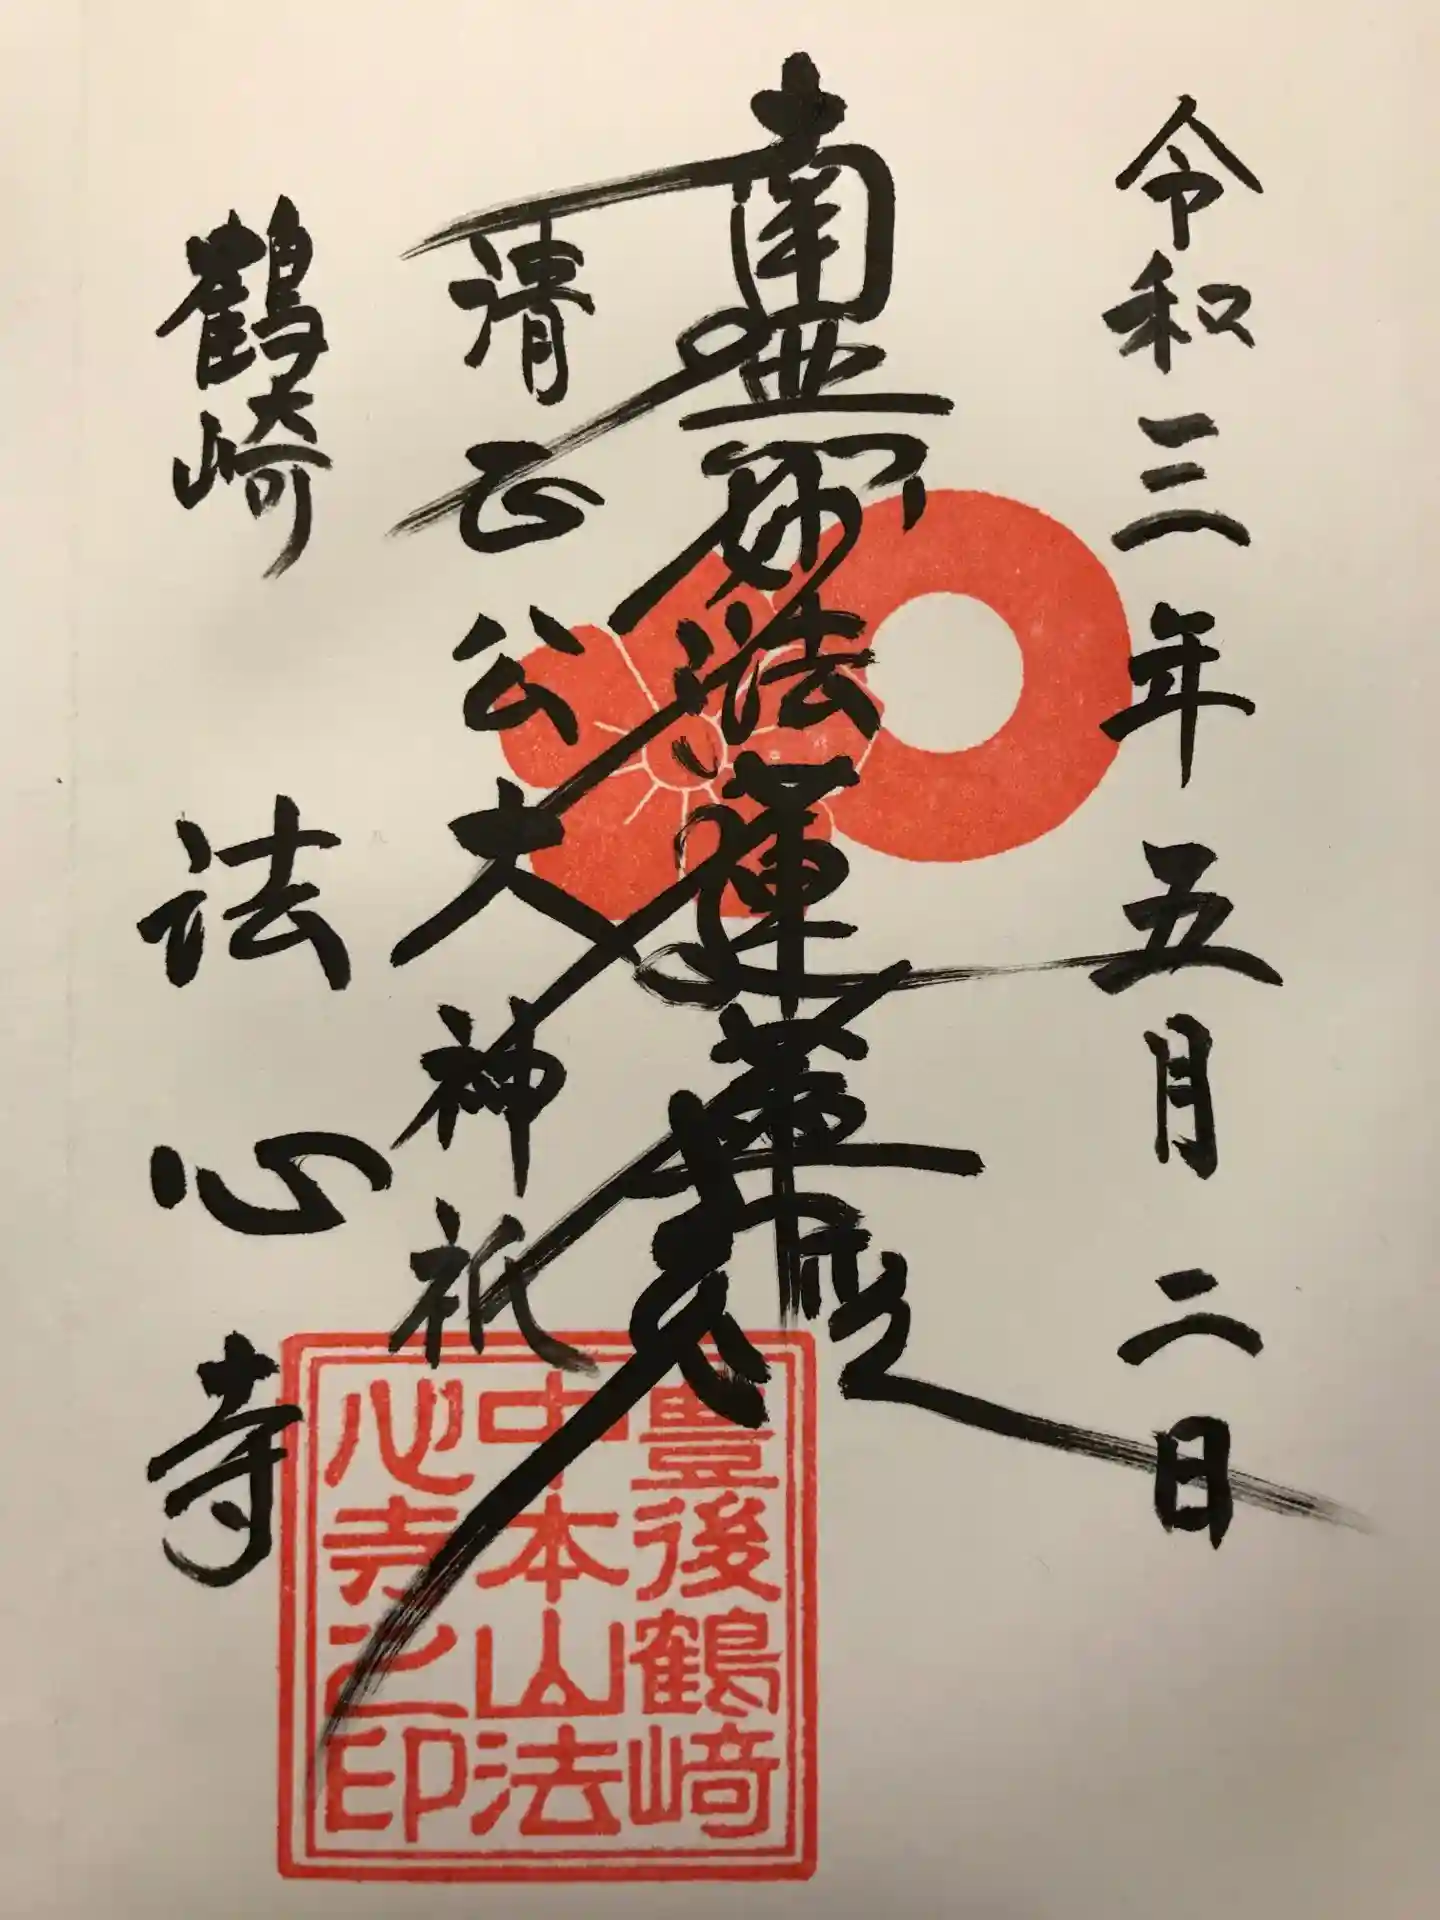 令和三年五月二日
南無妙法蓮華経
清正公大神祇
鶴崎 法心寺
豊後鶴崎
中本山法
心寺之印